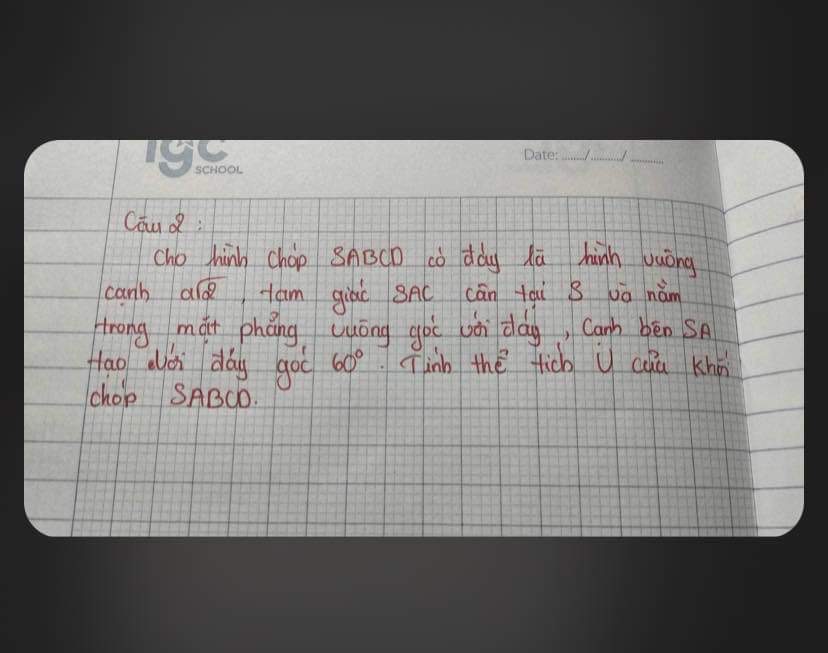 igc
SCHOOL
Date: ....../........./ ..........
Câu 2 :
Cho hình chóp SABCD có đáy là hình vuông
cạnh a√2 , tam giác SAC cân tại S và nằm
trong mặt phẳng vuông góc với đáy , Cạnh bên SA
tạo với đáy góc 60° . Tính thể tích V của khối
chóp SABCD.